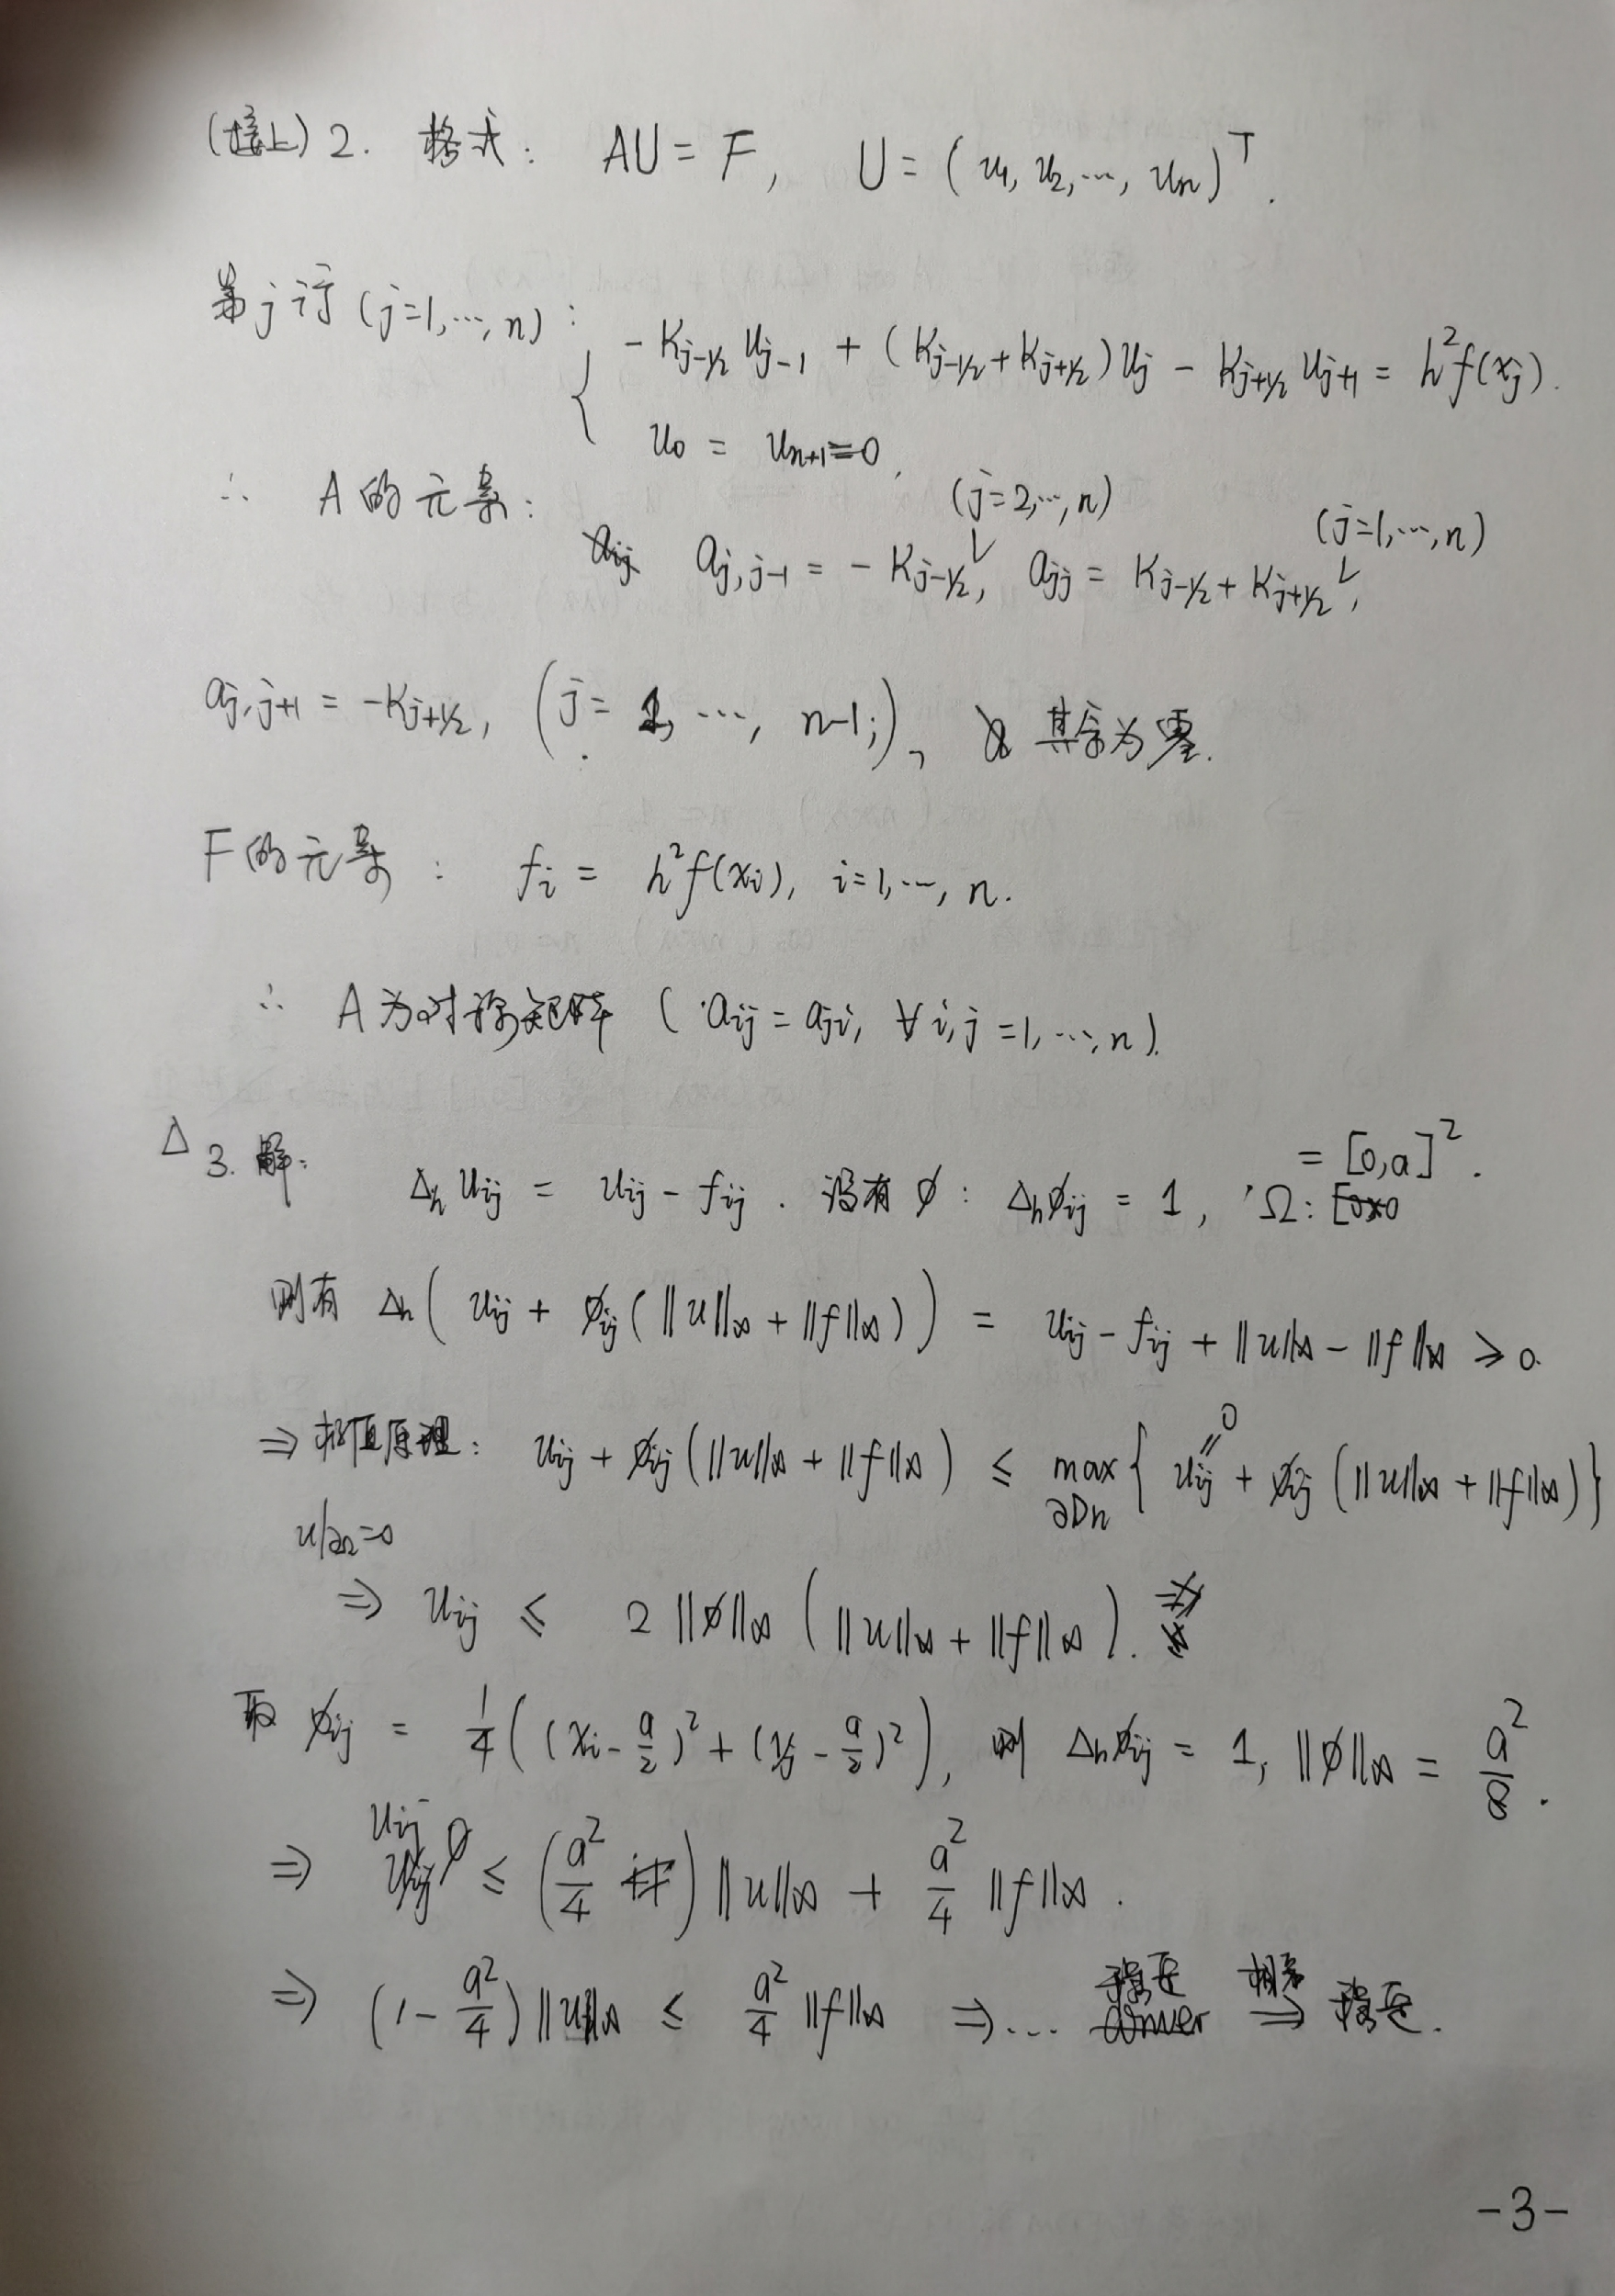 (接上) 2. 格式: AU = F, U = (u₁, u₂, ⋯, uₙ)ᵀ.
第 j 行 (j=1,⋯,n):
{ -K_{j-1/2} u_{j-1} + (K_{j-1/2} + K_{j+1/2}) u_j - K_{j+1/2} u_{j+1} = h² f(x_j).
u₀ = u_{n+1} = 0.
∴ A 的元素: (j=2,⋯,n) (j=1,⋯,n)
a_{j,j-1} = -K_{j-1/2}, a_{jj} = K_{j-1/2} + K_{j+1/2},
a_{j,j+1} = -K_{j+1/2}, (j = 1, ⋯, n-1;), 其余为零.
F 的元素: f_i = h² f(x_i), i=1,⋯,n.
∴ A 为对称矩阵 (a_{ij} = a_{ji}, ∀ i,j = 1,⋯,n).
Δ 3. 解: Δ_h u_{ij} = u_{ij} - f_{ij}. 设有 ϕ: Δ_h ϕ_{ij} = 1, Ω: = [0,a]².
则有 Δ_h ( u_{ij} + ϕ_{ij} (‖u‖_∞ + ‖f‖_∞) ) = u_{ij} - f_{ij} + ‖u‖_∞ - ‖f‖_∞ ≥ 0.
⇒ 极值原理: u_{ij} + ϕ_{ij} (‖u‖_∞ + ‖f‖_∞) ≤ max_{∂D_h} { u_{ij} (= 0) + ϕ_{ij} (‖u‖_∞ + ‖f‖_∞) }
u|_{∂Ω} = 0
⇒ u_{ij} ≤ 2‖ϕ‖_∞ (‖u‖_∞ + ‖f‖_∞).
取 ϕ_{ij} = 1/4 ( (x_i - a/2)² + (y_j - a/2)² ), 则 Δ_h ϕ_{ij} = 1, ‖ϕ‖_∞ = a²/8.
⇒ u_{ij} ≤ (a²/4) ‖u‖_∞ + a²/4 ‖f‖_∞.
⇒ (1 - a²/4) ‖u‖_∞ ≤ a²/4 ‖f‖_∞ ⇒ ⋯ 稳定 相容⇒ 稳定.
-3-